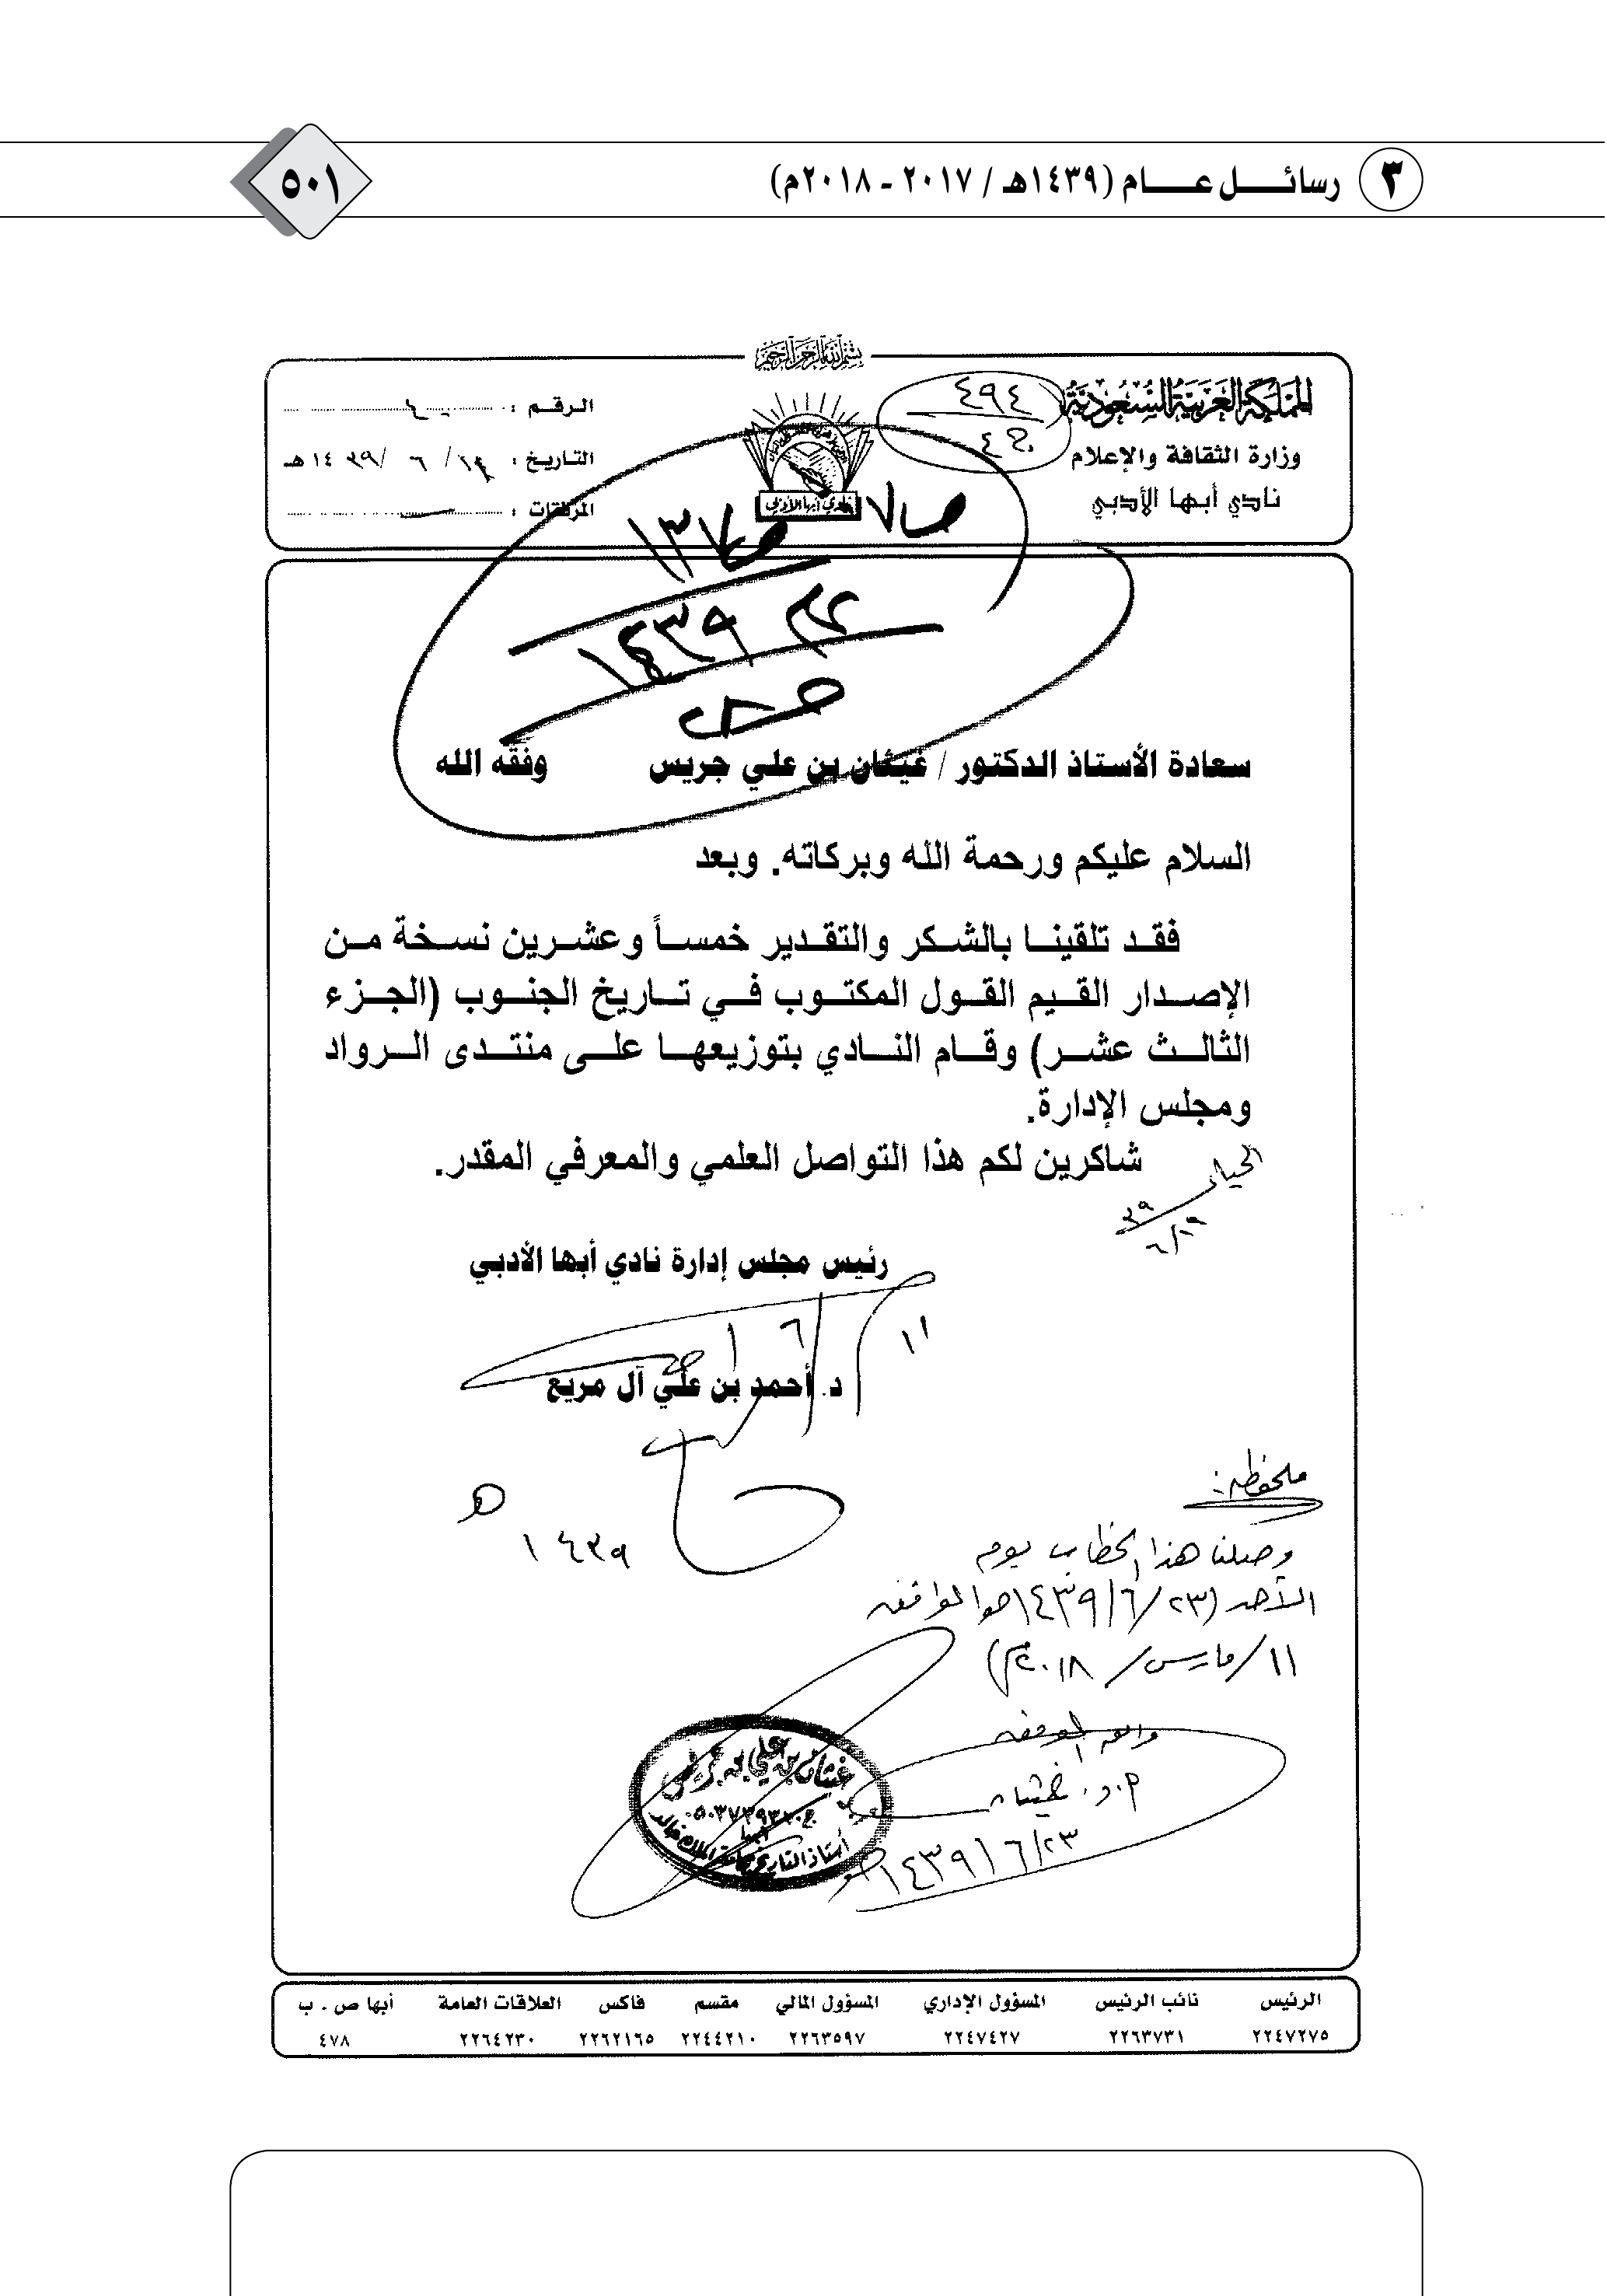 ٣ رسائل عام (١٤٣٩هـ / ٢٠١٧ - ٢٠١٨م)
٥٠١
بسم الله الرحمن الرحيم
المملكة العربية السعودية
وزارة الثقافة والإعلام
نادي أبها الأدبي
٤٩٤
نادي أبها الأدبي
الرقم :
التاريخ : / ٦ / ١٤٣٩هـ
المرفقات :
١٤٣٩
سعادة الأستاذ الدكتور / غيثان بن علي جريس وفقه الله
السلام عليكم ورحمة الله وبركاته. وبعد
فقد تلقينا بالشكر والتقدير خمساً وعشرين نسخة من
الإصدار القيم القول المكتوب في تاريخ الجنوب (الجزء
الثالث عشر) وقام النادي بتوزيعها على منتدى الرواد
ومجلس الإدارة.
شاكرين لكم هذا التواصل العلمي والمعرفي المقدر.
رئيس مجلس إدارة نادي أبها الأدبي
د. أحمد بن علي آل مريع
١٤٣٩ هـ
ملحوظة:
وصلنا هذا الخطاب يوم
الأحد (٢٣/٦/١٤٣٩هـ الموافق
١١/مارس/٢٠١٨م)
والله الموفق
أ.د. غيثان
٢٣/٦/١٤٣٩هـ
غيثان بن علي بن جريس
أبها
أستاذ التاريخ بجامعة الملك خالد
الرئيس نائب الرئيس المسؤول الإداري المسؤول المالي مقسم فاكس العلاقات العامة أبها ص . ب
٢٢٤٧٢٧٥ ٢٢٦٣٧٣١ ٢٢٤٧٤٢٧ ٢٢٦٣٥٩٧ ٢٢٤٤٢١٠ ٢٢٦٢١٦٥ ٢٢٦٤٢٣٠ ٤٧٨